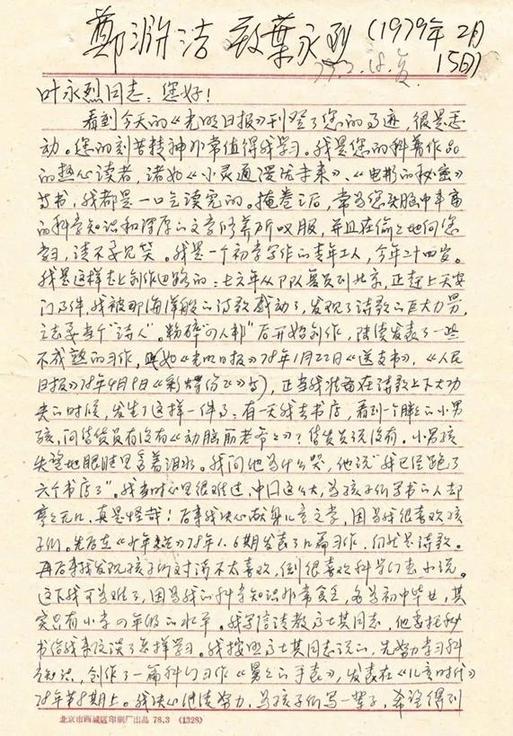 郑渊洁致叶永烈(1979年2月
15日)
79.2.18.复
叶永烈同志:您好!
看到今天的《光明日报》刊登了您的事迹,很是感
动。您的刻苦精神非常值得我学习。我是您的科普作品
的热心读者,诸如《小灵通漫游未来》、《电影的秘密》
等书,我都是一口气读完的。掩卷之后,常为您头脑中丰富
的科学知识和深厚的文学修养所叹服,并且在偷偷地向您
学习,请不要见笑。我是一个初学写作的青年工人,今年二十四岁。
我是这样走上创作道路的:七六年从部队复员到北京,正赶上天安
门事件,我被那海洋般的诗歌感动了,发现了诗歌的巨大力量,
立志要当个"诗人"。粉碎"四人邦"后开始创作,陆续发表了一些
不成熟的习作,(如《光明日报》78年1月22日《送支书》,《人民
日报》78年9月9日《彩蝶纷飞》等),正当我准备在诗歌上下大功
夫的时候,发生了这样一件事:有一天我去书店,看到一个胖胖的小男
孩,问售货员有没有《动脑筋爷爷》?售货员说没有。小男孩
失望地眼睛里含着泪水。我问他为什么哭,他说"我已经跑了
六个书店了"。我当时心里很难过,中国这么大,为孩子们写书的人却
寥寥无几,真是怪哉!后来我决心献身儿童文学,因为我很喜欢孩
子们。先后在《》78年1.6期发表了几篇习作,仍然是诗歌。
再后来我发现孩子们对诗不太喜欢,倒很喜欢科学幻想小说。
这下我可为难了,因为我的科学知识非常贫乏,名为初中毕业,其
实只有小学四年级的水平。我写信请教高士其同志,他委托秘
书给我来信谈了怎样学习。我按照高士其同志说的,先努力学习科
学知识,创作了一篇科幻习作《黑黑的手表》,发表在《儿童时代》
78年第8期上。我决心继续努力,为孩子们写一辈子,希望得到
北京市西城区印刷厂出品 78.3 (1328)